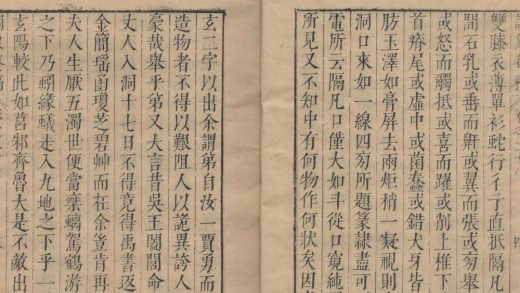 雙膝衣薄單衫蛇行彳亍直抵隔凡
間石乳或垂而斷或翼而張或旁舉
或怒而觸抵或喜而躍或削上椎下
首瘠尾或虛中或菌蠢或錯犬牙皆
肪玉澤如膏屏去兩炬稍一凝視則
洞口來如一線四旁所題篆隸盡可
電所云隔凡口僅大如斗從口寬純
所見又不知中有何物作何狀矣因
玄二字以出余謂弟自汝一賈勇而
造物者不得以艱阻人以詭異誇人
豪哉舉乎弟又大言昔吳王闔閭命
丈人入洞十七日不得竟得禹書返
金簡瑶函瓊芝碧艸而在余豈肯再
夫人生厭五濁世便當駕鶴游
之下乃蚓緣蟻走入九地之下乎一
玄陽較此如莒邾齊魯大是不敵出